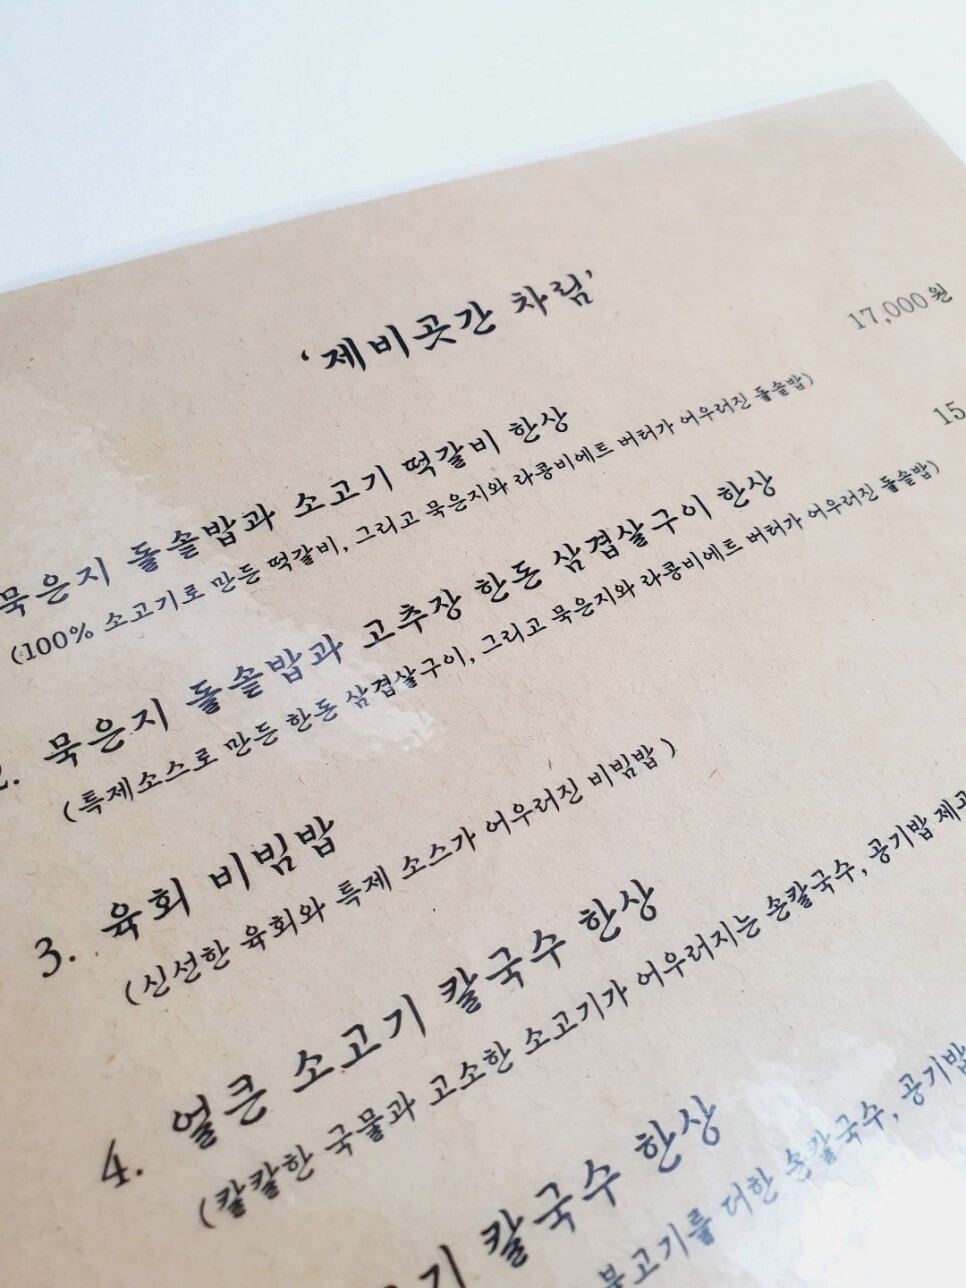 ‘제비곳간 차림’
묵은지 돌솥밥과 소고기 떡갈비 한상 17,000원
(100% 소고기로 만든 떡갈비, 그리고 묵은지와 라콩비에트 버터가 어우러진 돌솥밥)
2. 묵은지 돌솥밥과 고추장 한돈 삼겹살구이 한상 15
(특제소스로 만든 한돈 삼겹살구이, 그리고 묵은지와 라콩비에트 버터가 어우러진 돌솥밥)
3. 육회 비빔밥
(신선한 육회와 특제 소스가 어우러진 비빔밥 )
4. 얼큰 소고기 칼국수 한상
(칼칼한 국물과 고소한 소고기가 어우러지는 손칼국수, 공기밥 제공
기 칼국수 한상
불고기를 더한 손칼국수, 공기밥